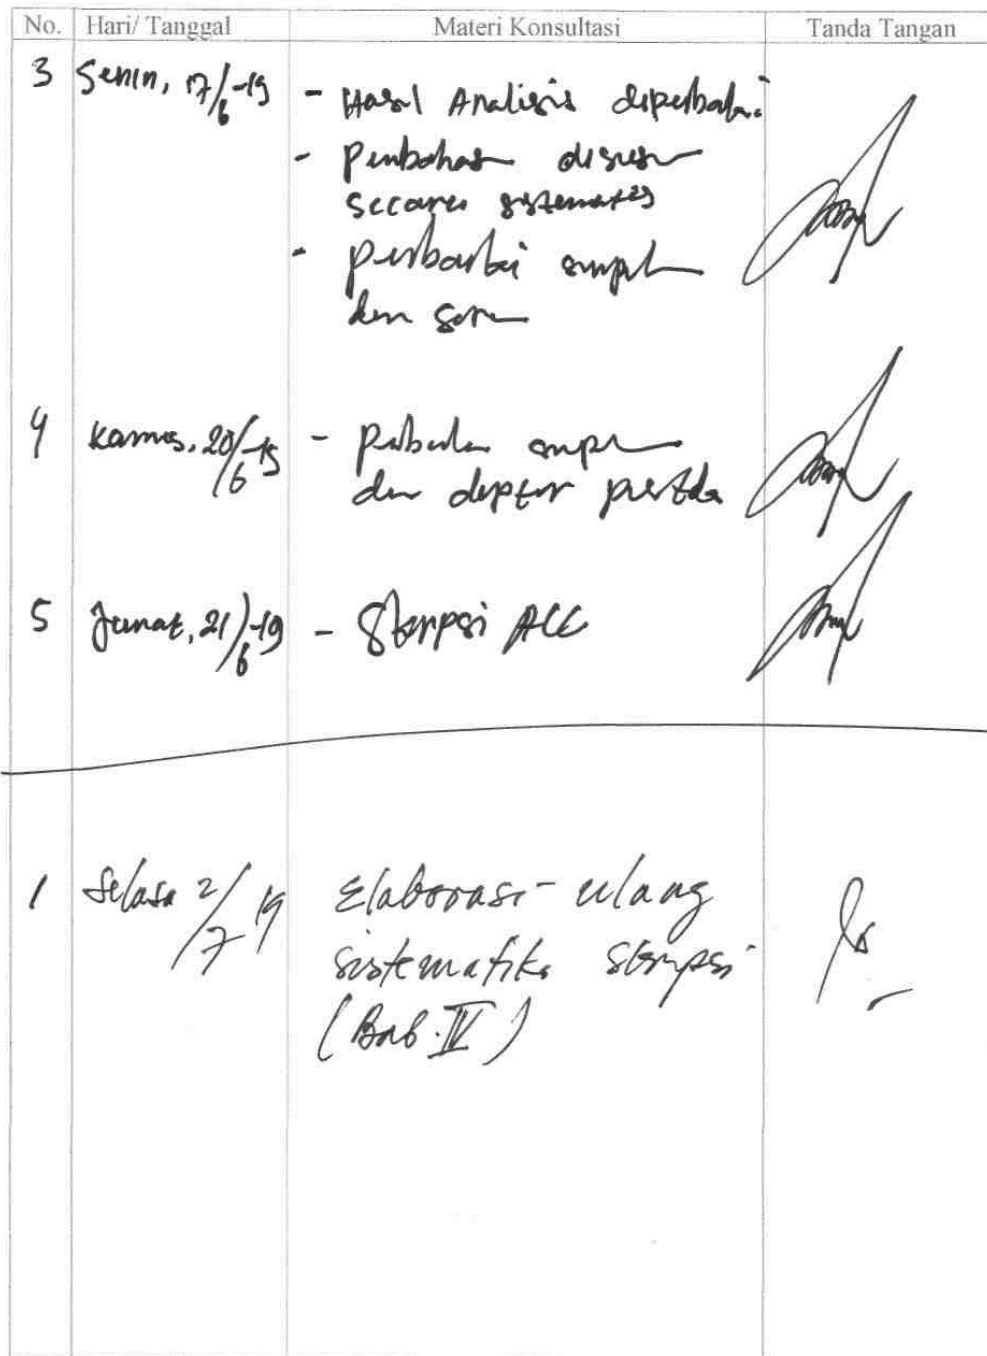 No. Hari/ Tanggal Materi Konsultasi Tanda Tangan
3 Senin, 17/6-19 - Hasil Analisis diperbaiki
- Pembahasan disusun
secara sistematis
- perbaiki simpulan
dan saran
4 Kamis, 20/6-19 - Perbaiki simpulan
dan daptar pustaka
5 Jumat, 21/6-19 - Skripsi ACC
1 Selasa 2/7 19 Elaborasi-ulang
sistematika skripsi
(Bab.IV)